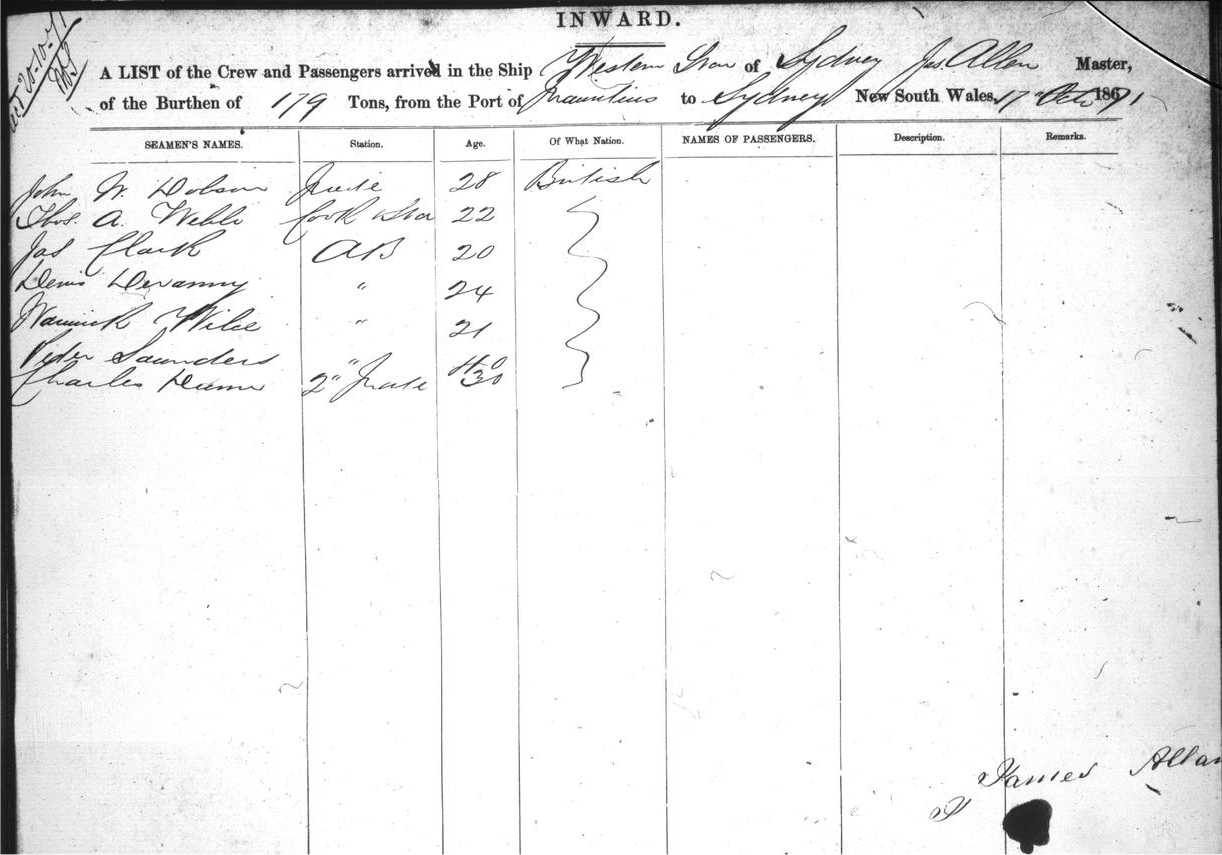 INWARD.
A LIST of the Crew and Passengers arrived in the Ship Western Star of Sydney Jas. Allen Master,
of the Burthen of 179 Tons, from the Port of Mauritius to Sydney New South Wales, 17 Octo 1871
SEAMEN'S NAMES. Station. Age. Of What Nation. NAMES OF PASSENGERS. Description. Remarks.
John W. Dobson Mate 28 British
Thos. A. Webb Cook 22
Jas Clark AB 20
Denis Devanny " 24
Warnick " 21
Peter Saunders " 40
Charles 2" Mate 30
James Allan